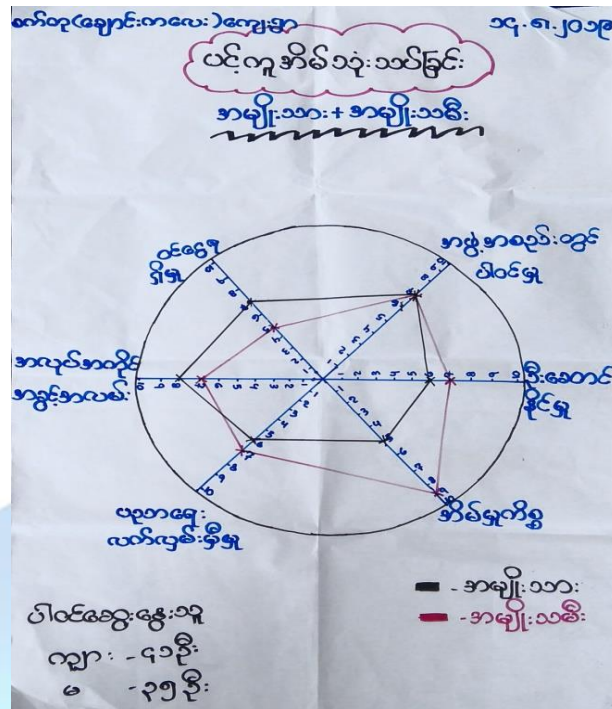 စက်တု(ချောင်းကလေး)ကျေးရွာ
၁၄.၈.၂၀၁၉
ပင့်ကူအိမ်သုံးသပ်ခြင်း
အမျိုးသား + အမျိုးသမီး
ဝင်ငွေရ
ရှိမှု
အဖွဲ့အစည်းတွင်
ပါဝင်မှု
အလုပ်အကိုင်
အခွင့်အလမ်း
ဦးဆောင်
နိုင်မှု
ပညာရေး
လက်လှမ်းမှီမှု
အိမ်မှုကိစ္စ
- အမျိုးသား
- အမျိုးသမီး
ပါဝင်ဆွေးနွေးသူ
ကျား - ၄၁ဦး
မ - ၃၅ဦး